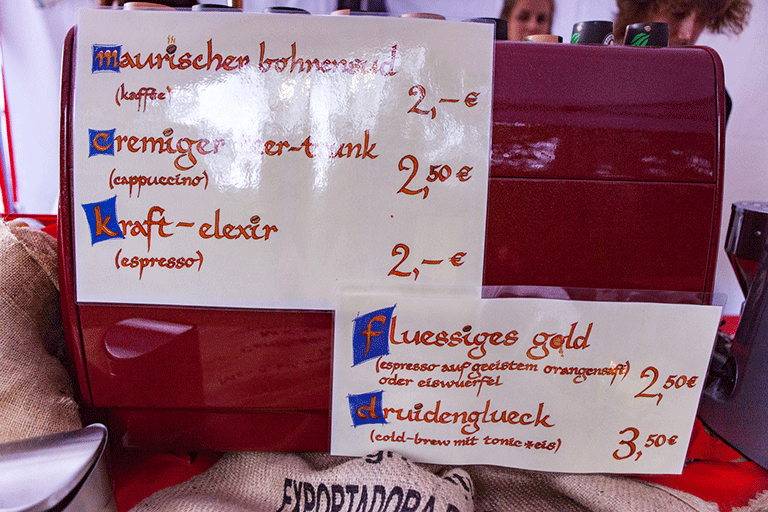 maurischer bohnensud
(kaffee)
2,- €
cremiger
(cappuccino)
2,50 €
kraft-elexir
(espresso)
2,- €
fluessiges gold
(espresso auf geeistem orangensaft)
oder eiswuerfel
2,50 €
druidenglueck
(cold-brew mit tonic * eis)
3,50 €
EXPORTADORA